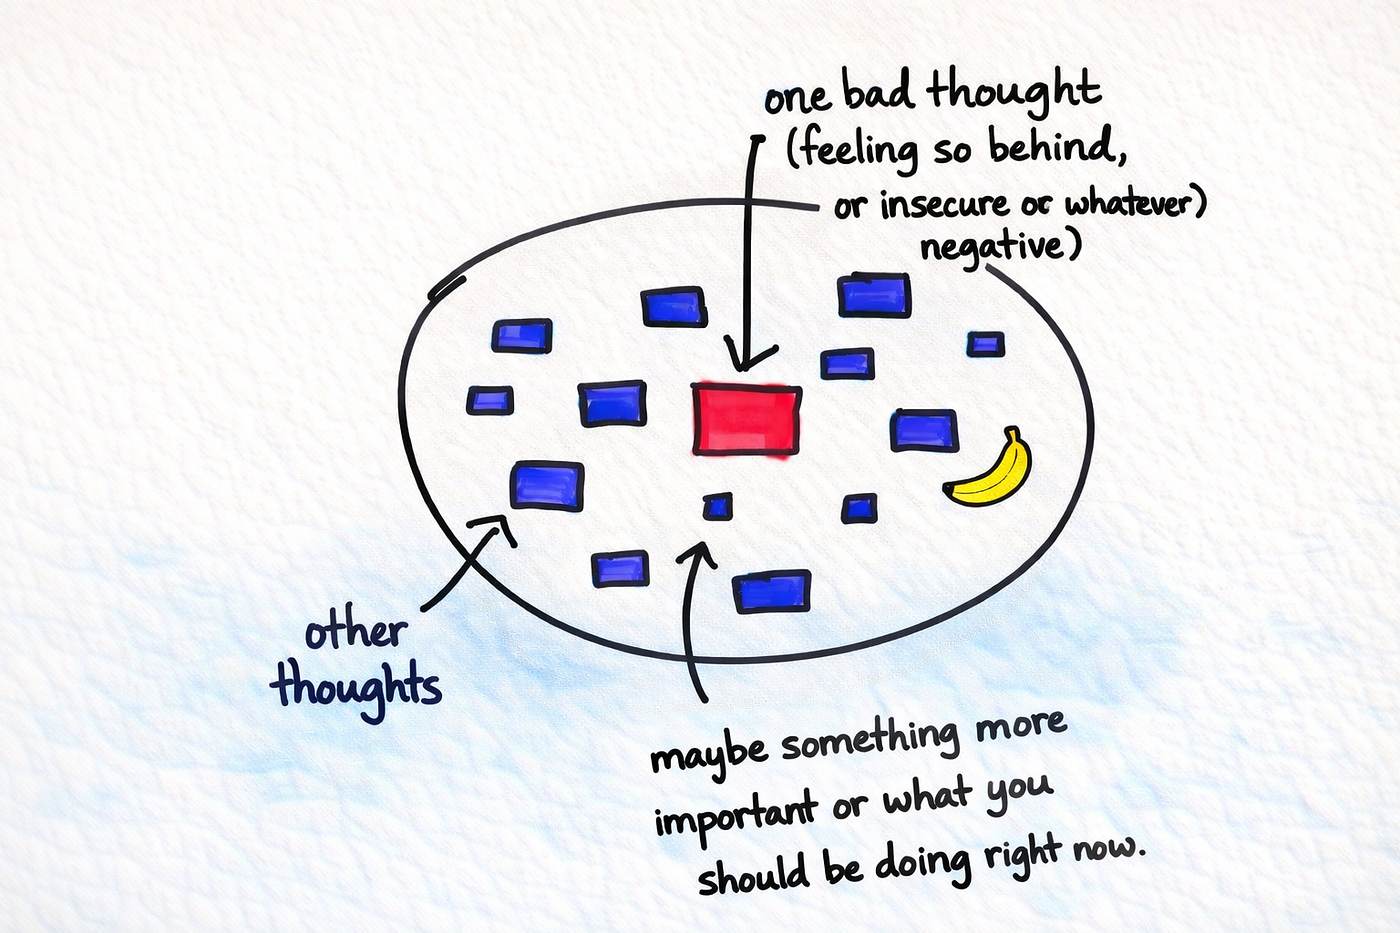 one bad thought
(feeling so behind,
or insecure or whatever)
negative)
other
thoughts
maybe something more
important or what you
should be doing right now.